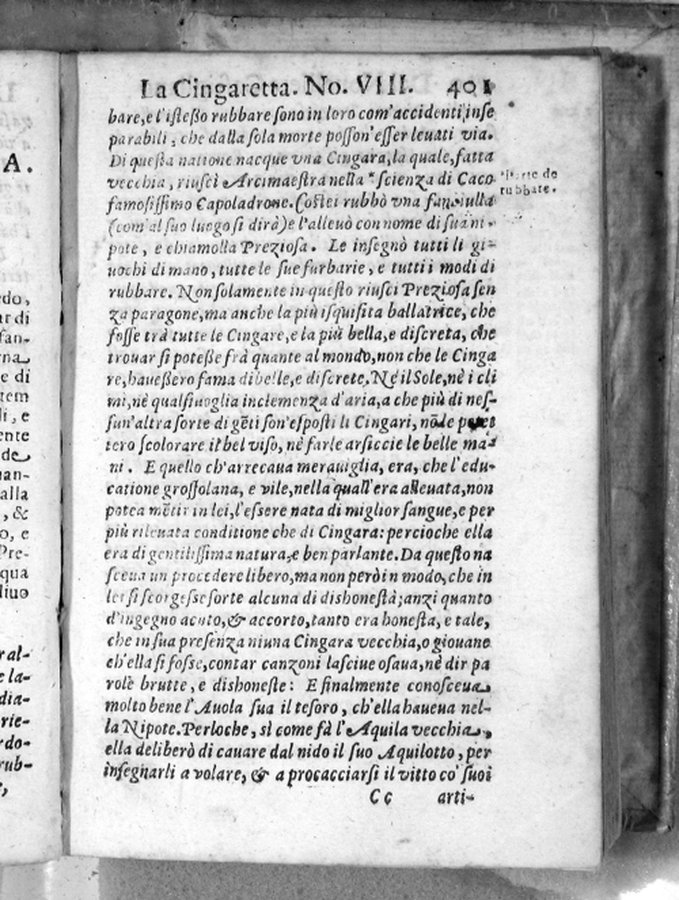 La Cingaretta. No. VIII. 401
bare, e l'istesso rubbare sono in loro com'accidenti inse
parabili, che dalla sola morte posson'esser leuati via.
Di questa natione nacque vna Cingara, la quale, fatta
vecchia, riuscì Arcimaestra nella * scienza di Caco
famosissimo Capoladrone. Costei rubbò vna fanciulla
(com'al suo luogo si dirà) e l'alleuò con nome di sua ni-
pote, e chiamolla Preziosa. Le insegnò tutti li gi-
uochi di mano, tutte le sue furbarie, e tutti i modi di
rubbare. Non solamente in questo riuscì Preziosa sen
za paragone, ma anche la più isquisita ballatrice, che
fosse trà tutte le Cingare, e la più bella, e discreta, che
trouar si potesse frà quante al mondo, non che le Cinga
re, hauessero fama di belle, e discrete. Nè il Sole, nè i cli
mi, nè qualsiuoglia inclemenza d'aria, a che più di nes-
sun'altra sorte di gēti son'esposti li Cingari, nō le potet
tero scolorare il bel viso, nè farle arsiccie le belle ma-
ni. E quello ch'arrecaua merauiglia, era, che l'edu-
catione grossolana, e vile, nella quall'era alleuata, non
potea mētir in lei, l'essere nata di miglior sangue, e per
più rileuata conditione che di Cingara: percioche ella
era di gentilissima natura, e ben parlante. Da questo na
sceua un procedere libero, ma non però in modo, che in
lei si scorgesse sorte alcuna di dishonestà; anzi quanto
d'ingegno acuto, & accorto, tanto era honesta, e tale,
che in sua presenza niuna Cingara vecchia, o giouane
ch'ella si fosse, contar canzoni lasciue osaua, nè dir pa
role brutte, e dishoneste: E finalmente conosceua
molto bene l'Auola sua il tesoro, ch'ella haueua nel-
la Nipote. Perloche, sì come fà l'Aquila vecchia,
ella deliberò di cauare dal nido il suo Aquilotto, per
insegnarli a volare, & a procacciarsi il vitto co' suoi
Cc arti-
*l'arte de
rubbare.
A.
edo,
ar di
fan-
rna
e di
tem
li, e
ente
de
nan-
alla
, &
o, e
Pre-
qua
diuo
r al-
e la-
dia-
rie-
rdo-
rub-